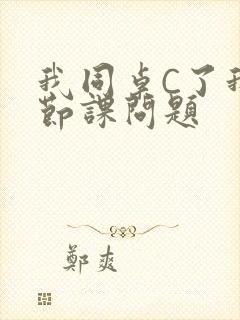 我同桌C了我
節課問題
鄭爽